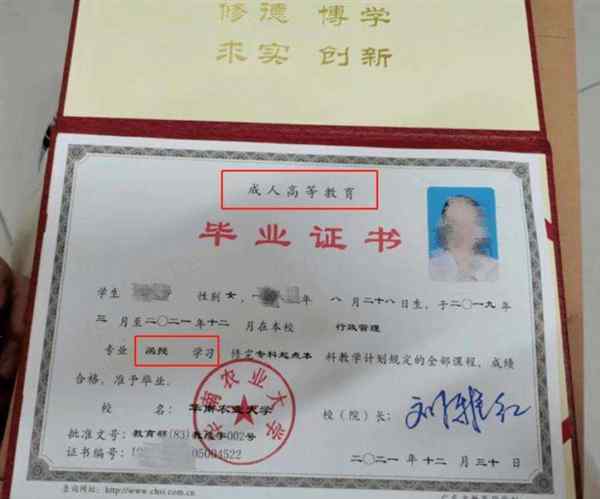 修德 博学
求实 创新
成人高等教育
毕业证书
学生 性别 女，一 年 八 月二十八日生，于二〇一九年
三 月至二〇二一年十二 月在本校 行政管理
专业 函授 学习 修完专科起点本 科教学计划规定的全部课程，成绩
合格，准予毕业。
校 名：华南农业大学 校（院）长：
批准文号：教育部(83)教成字002号
证书编号：10 05004522 二〇二一年 十二 月 三十日
查询网址：http://www.chsi.com.cn
华南农业大学